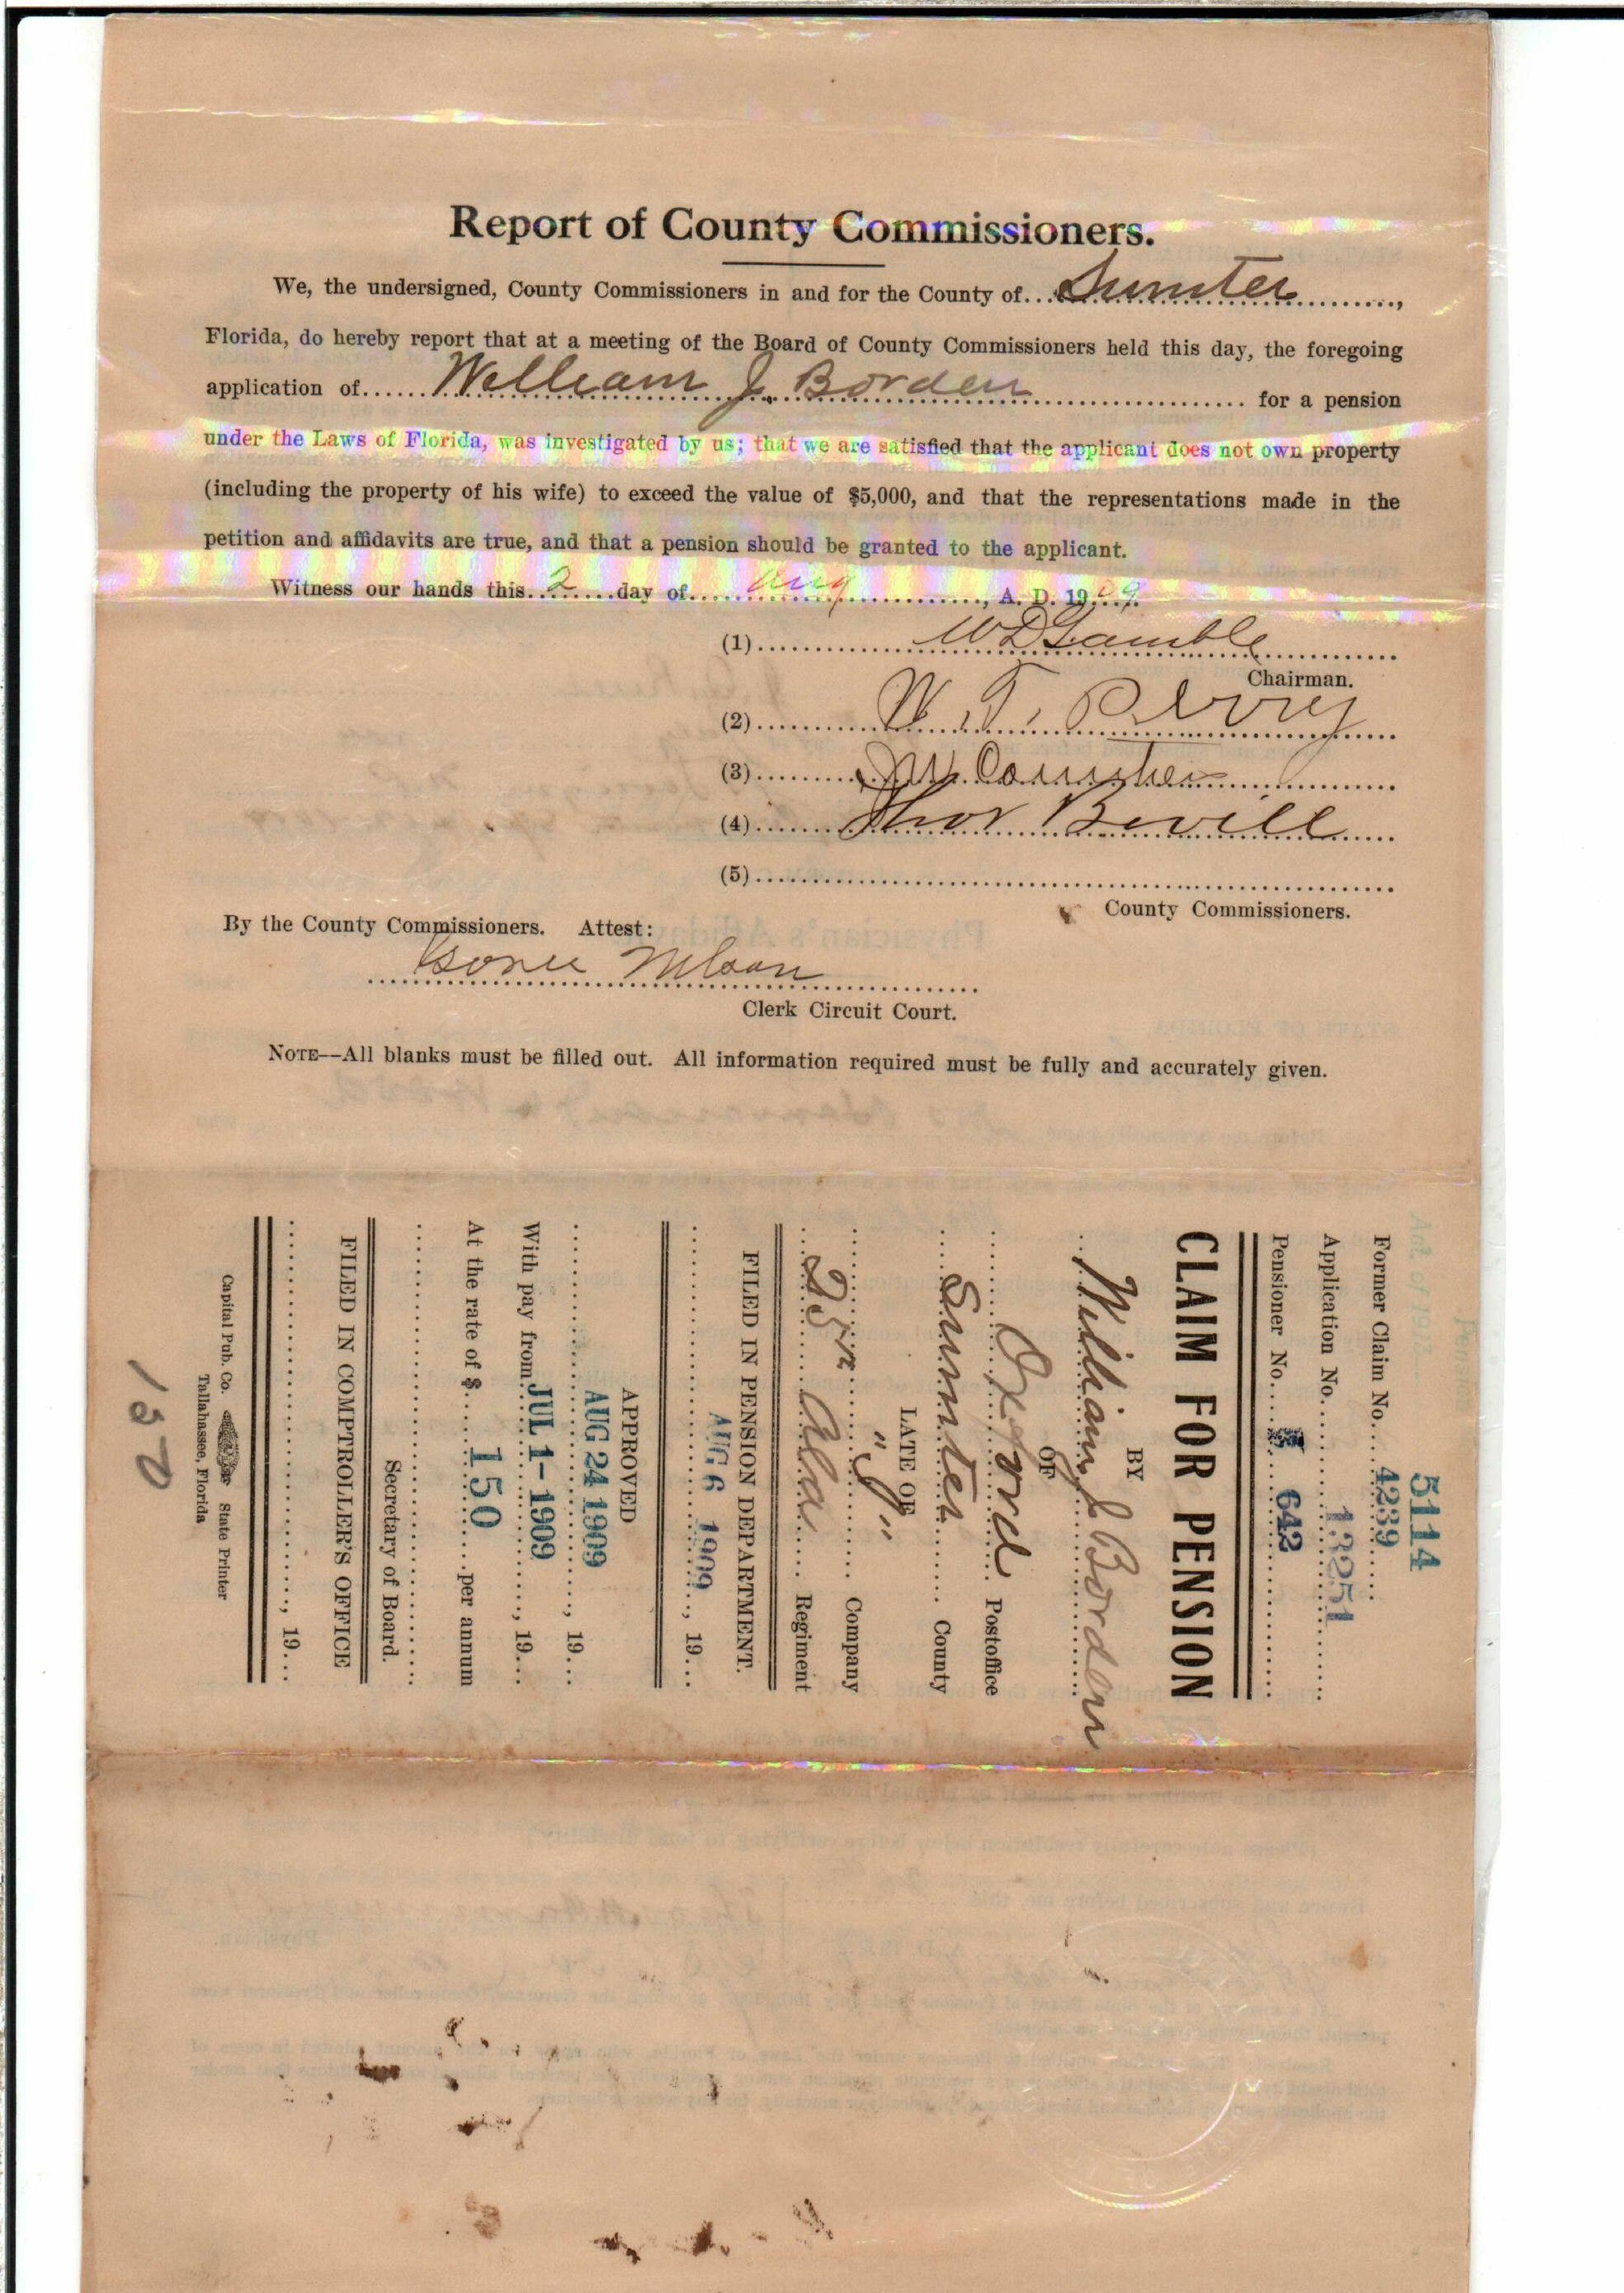 Report of County Commissioners.
We, the undersigned, County Commissioners in and for the County of....Sumter............,
Florida, do hereby report that at a meeting of the Board of County Commissioners held this day, the foregoing
application of......William J. Borden...................... for a pension
under the Laws of Florida, was investigated by us; that we are satisfied that the applicant does not own property
(including the property of his wife) to exceed the value of $5,000, and that the representations made in the
petition and affidavits are true, and that a pension should be granted to the applicant.
Witness our hands this..2.....day of......Aug..............., A. D. 1909.
(1)..............W D Gamble..............
Chairman.
(2)..............W. T. Perry..............
(3)..............
(4)..............Thos Bevill..............
(5)..............
County Commissioners.
By the County Commissioners. Attest:
..............
Clerk Circuit Court.
NOTE--All blanks must be filled out. All information required must be fully and accurately given.
5114
Former Claim No....4239......
Application No.......13251.......
Pensioner No....... 642..........
CLAIM FOR PENSION
BY
..William J Borden
OF
.......Oxford... Postoffice
....Sumter....... County
LATE OF
........"G"........ Company
...25th...Ala..... Regiment
FILED IN PENSION DEPARTMENT.
AUG 6 1909......, 19...
APPROVED
AUG 24 1909......, 19...
With pay from JUL 1-1909......, 19...
At the rate of $.....150.....per annum
..............
Secretary of Board.
FILED IN COMPTROLLER'S OFFICE
.............., 19...
Capital Pub. Co. State Printer
Tallahassee, Florida
150